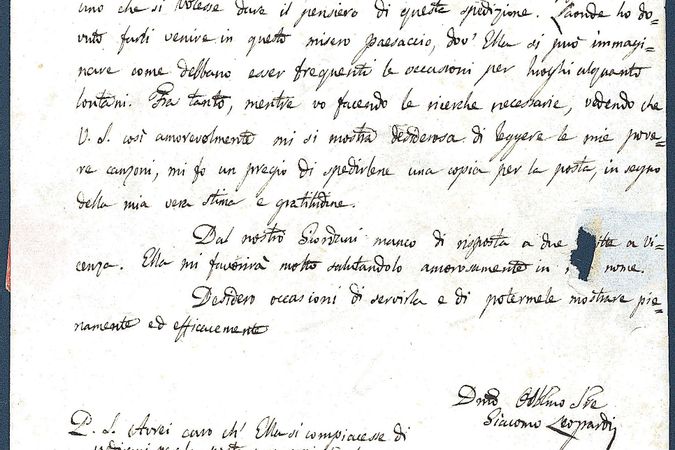 uno che si volesse dare il pensiero di questa spedizione. Laonde ho do=
vuto farli venire in questo misero paesaccio, dov' Ella si può immagi=
nare come debbano esser frequenti le occasioni per luoghi alquanto
lontani. Fra tanto, mentre vo facendo le ricerche necessarie, vedendo che
V. S. così amorevolmente mi si mostra desiderosa di leggere le mie pove=
re canzoni, mi fo un pregio di spedirlene una copia per la posta, in segno
della mia vera stima e gratitudine.
Dal nostro Giordani manco di risposta a due itte a Vi=
cenza. Ella mi favorirà molto salutandolo amorosamente in nome.
Desidero occasioni di servirla e di potermele mostrare pie=
namente ed efficacemente
Dmo Obblmo Sre
Giacomo Leopardi
P. S. Avrei caro ch' Ella si compiacesse di